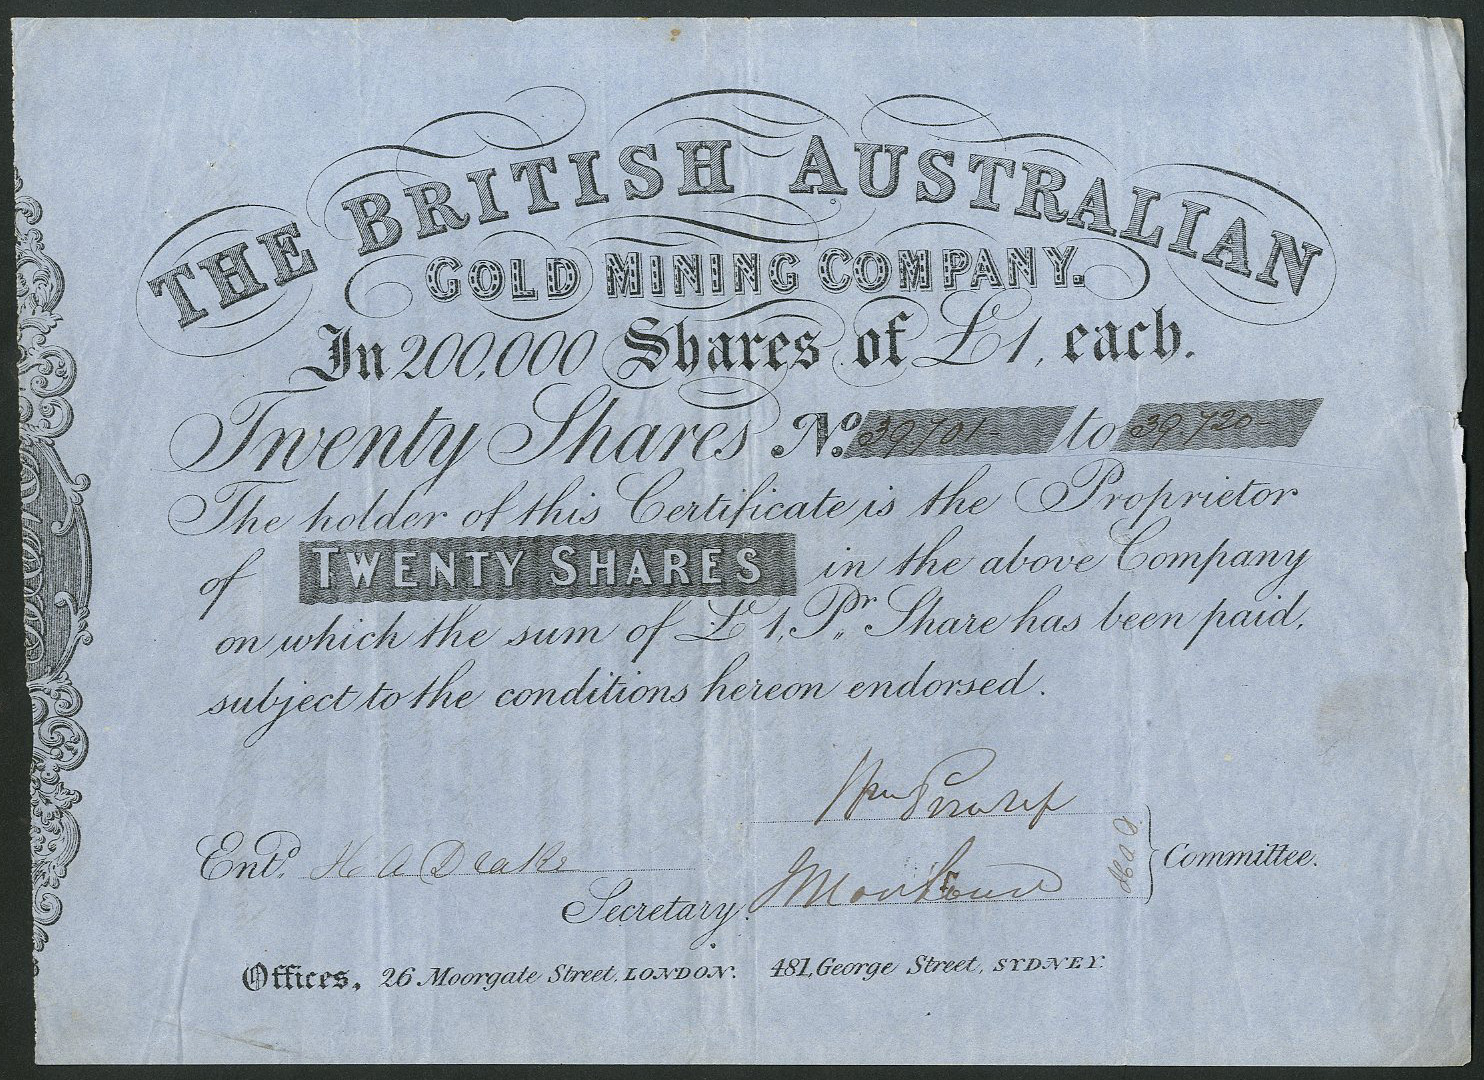 THE BRITISH AUSTRALIAN
GOLD MINING COMPANY.
In 200,000 Shares of £1, each.
Twenty Shares No. 39701 to 39720
The holder of this Certificate is the Proprietor
of TWENTY SHARES in the above Company
on which the sum of £1, Pr. Share has been paid,
subject to the conditions hereon endorsed.
Entd. H A Drake
Committee.
Secretary.
Offices, 26 Moorgate Street, LONDON. 481, George Street, SYDNEY.